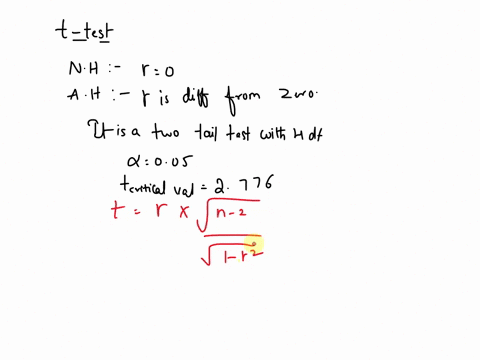 t-test
N.H :- r=0
A.H :- r is diff from zero.
It is a two tail test with 4 df
α=0.05
tcritical val = 2.776
t = r × √n-2
√1-r²